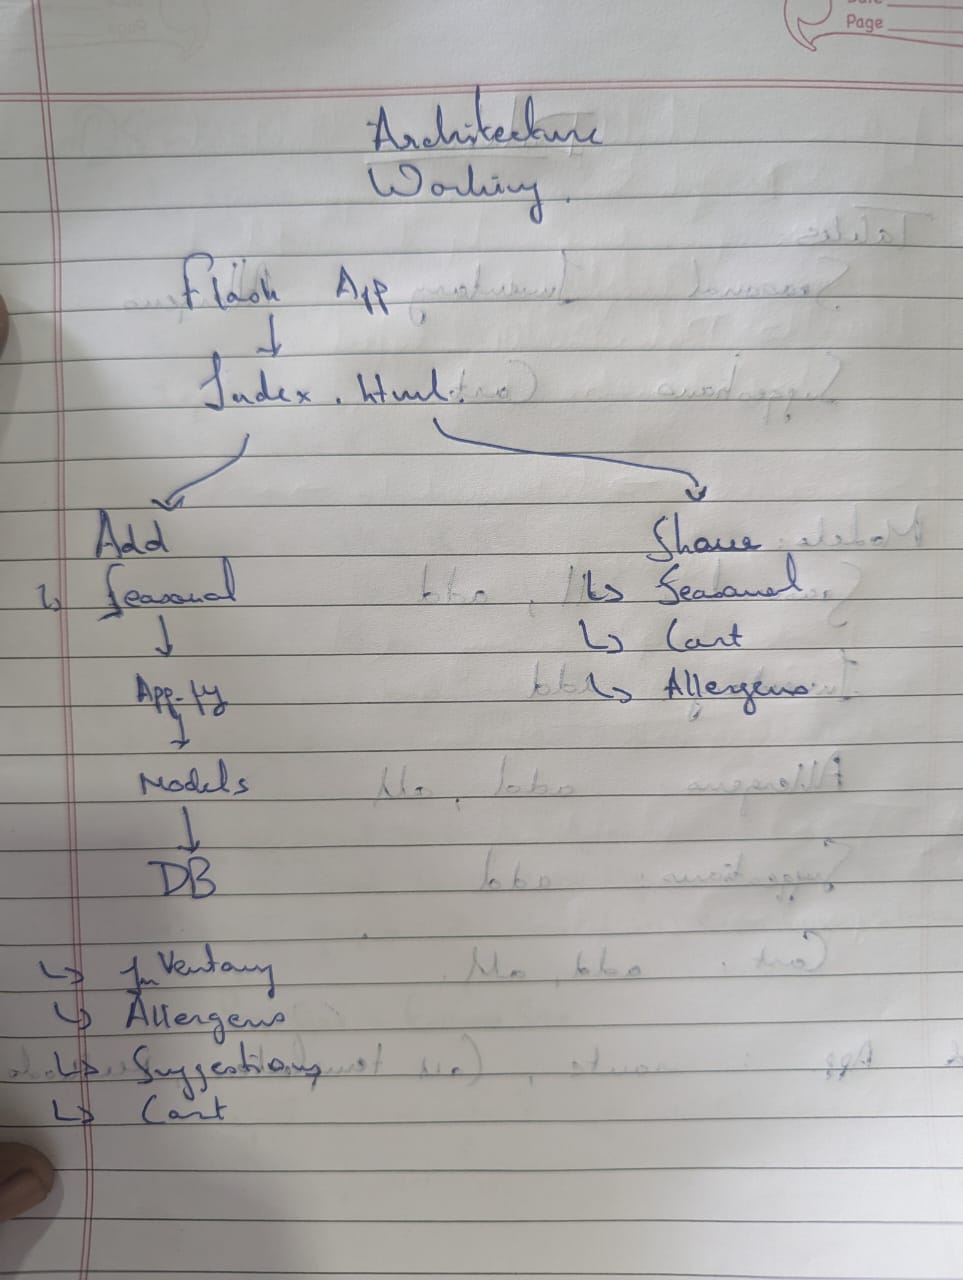 Page
Architecture
Working.
Flask App
↓
Index.html.
Add
↳ Seasonal
↓
App.py
↓
Models
↓
DB
↳ Inventory
↳ Allergens
↳ Suggestions
↳ Cart
Share
↳ Seasonal
↳ Cart
↳ Allergens